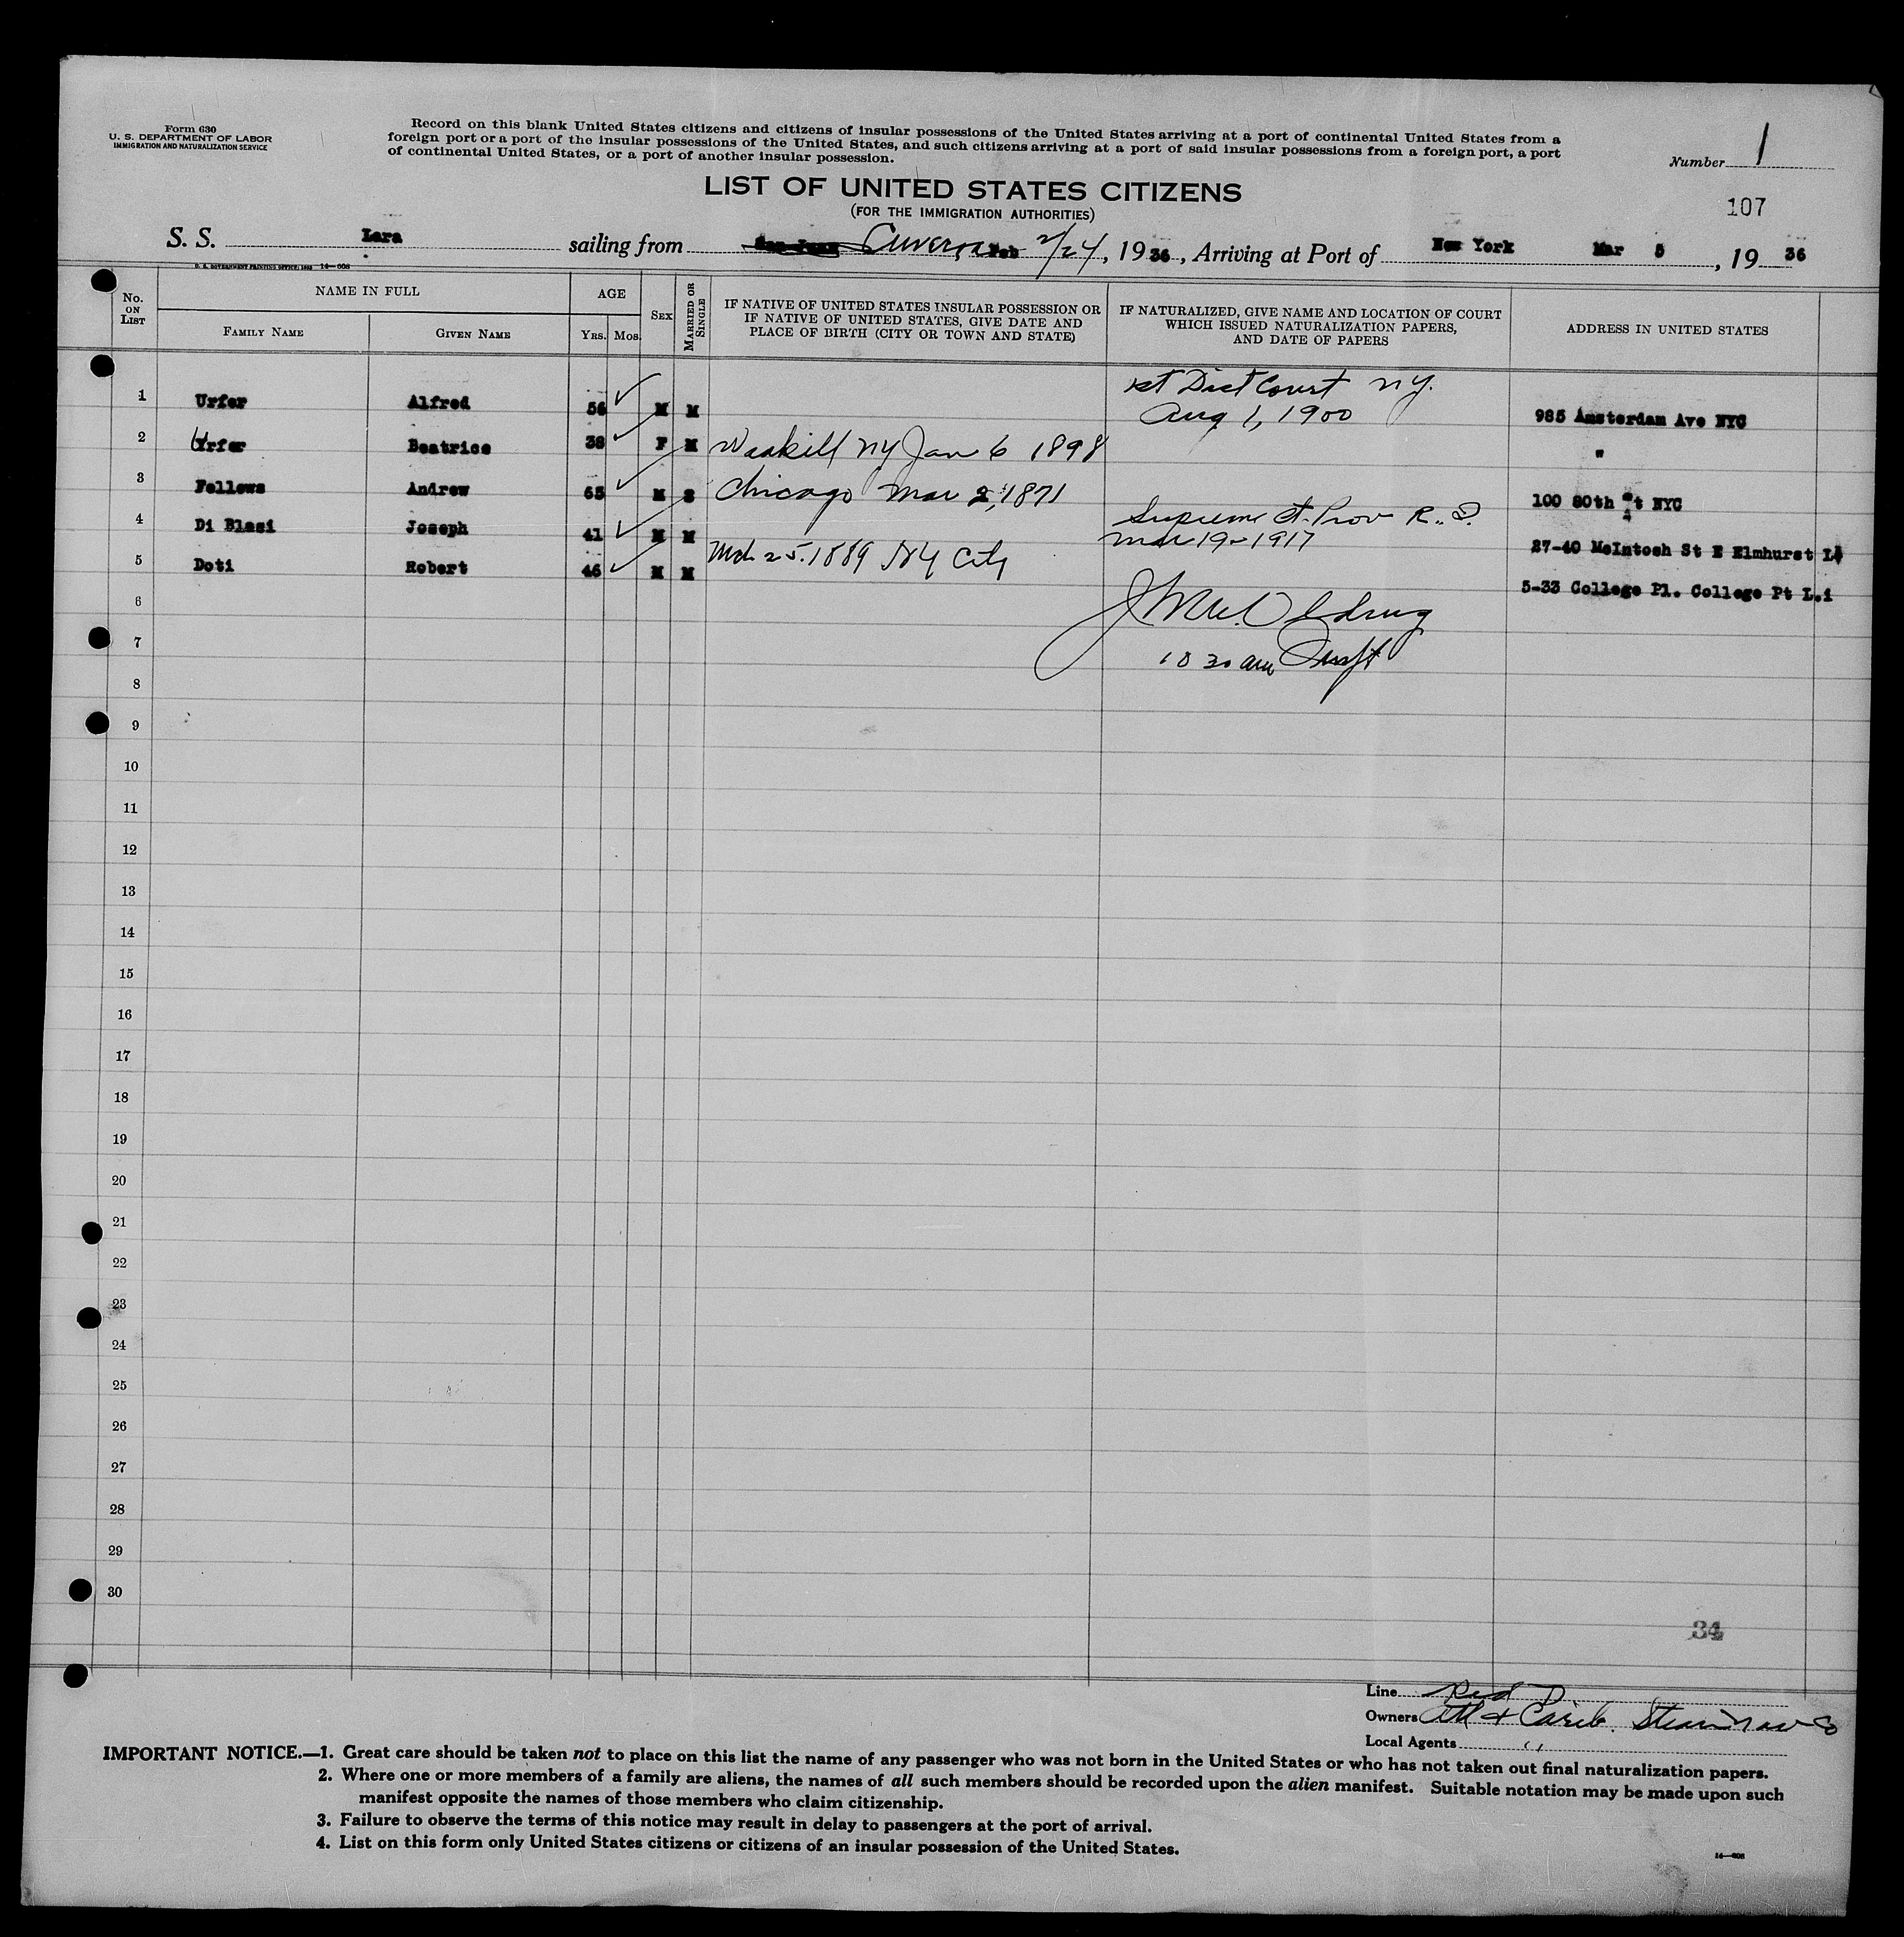 Form 630
U. S. DEPARTMENT OF LABOR
IMMIGRATION AND NATURALIZATION SERVICE
Record on this blank United States citizens and citizens of insular possessions of the United States arriving at a port of continental United States from a
foreign port or a port of the insular possessions of the United States, and such citizens arriving at a port of said insular possessions from a foreign port, a port
of continental United States, or a port of another insular possession.
Number 1
107
LIST OF UNITED STATES CITIZENS
(FOR THE IMMIGRATION AUTHORITIES)
S. S. Lara sailing from San Juan Feb 2/24, 1936, Arriving at Port of New York Mar 5, 1936
U. S. GOVERNMENT PRINTING OFFICE: 14—608
No. ON LIST
NAME IN FULL
FAMILY NAME
GIVEN NAME
AGE
YRS. MOS.
SEX
MARRIED OR SINGLE
IF NATIVE OF UNITED STATES INSULAR POSSESSION OR
IF NATIVE OF UNITED STATES, GIVE DATE AND
PLACE OF BIRTH (CITY OR TOWN AND STATE)
IF NATURALIZED, GIVE NAME AND LOCATION OF COURT
WHICH ISSUED NATURALIZATION PAPERS,
AND DATE OF PAPERS
ADDRESS IN UNITED STATES
1 Urfer Alfred 56 M M 1st Dist Court NY. Aug 1, 1900 985 Amsterdam Ave NYC
2 Urfer Beatrice 38 F M NY Jan 6 1898 "
3 Fellows Andrew 65 M S Chicago Mar 2, 1871 100 80th St NYC
4 Di Blasi Joseph 41 M M Supreme Ct. Prov R. I. Mar 19 - 1917 27-40 McIntosh St E Elmhurst LI
5 Doti Robert 46 M M Mch 25. 1889 NY City 5-33 College Pl. College Pt L.i
6
10 30 am Inspt
7
8
9
10
11
12
13
14
15
16
17
18
19
20
21
22
23
24
25
26
27
28
29
30
34
Line Red D
Owners Atl & Carib. Steam Nav Co
Local Agents "
IMPORTANT NOTICE.—1. Great care should be taken not to place on this list the name of any passenger who was not born in the United States or who has not taken out final naturalization papers.
2. Where one or more members of a family are aliens, the names of all such members should be recorded upon the alien manifest. Suitable notation may be made upon such
manifest opposite the names of those members who claim citizenship.
3. Failure to observe the terms of this notice may result in delay to passengers at the port of arrival.
4. List on this form only United States citizens or citizens of an insular possession of the United States.
14—608